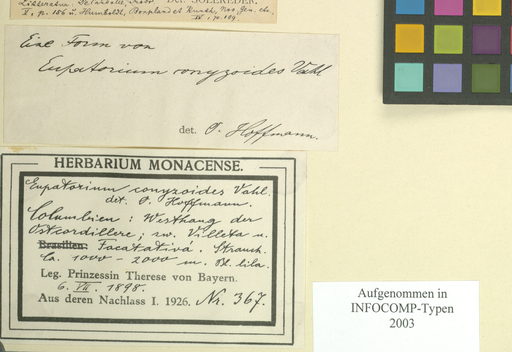 Litteratur: Decandolle, Prodr. Det. SOLEREDER.
V, p. 186 u. Humboldt, Bonpland et Kunth, Nov. Gen. etc.
IV, p. 109.
Eine Form von
Eupatorium conyzoides Vahl
det. O. Hoffmann.
HERBARIUM MONACENSE.
Eupatorium conyzoides Vahl.
det. O. Hoffmann.
Columbien: Westhang der
Ostcordillere; zw. Villeta u.
Brasilien: Facatativá. Strauch.
Ca. 1000-2000 m. Bl. lila.
Leg. Prinzessin Therese von Bayern.
6. VII. 1898.
Aus deren Nachlass I. 1926. Nr. 367.
Aufgenommen in
INFOCOMP-Typen
2003